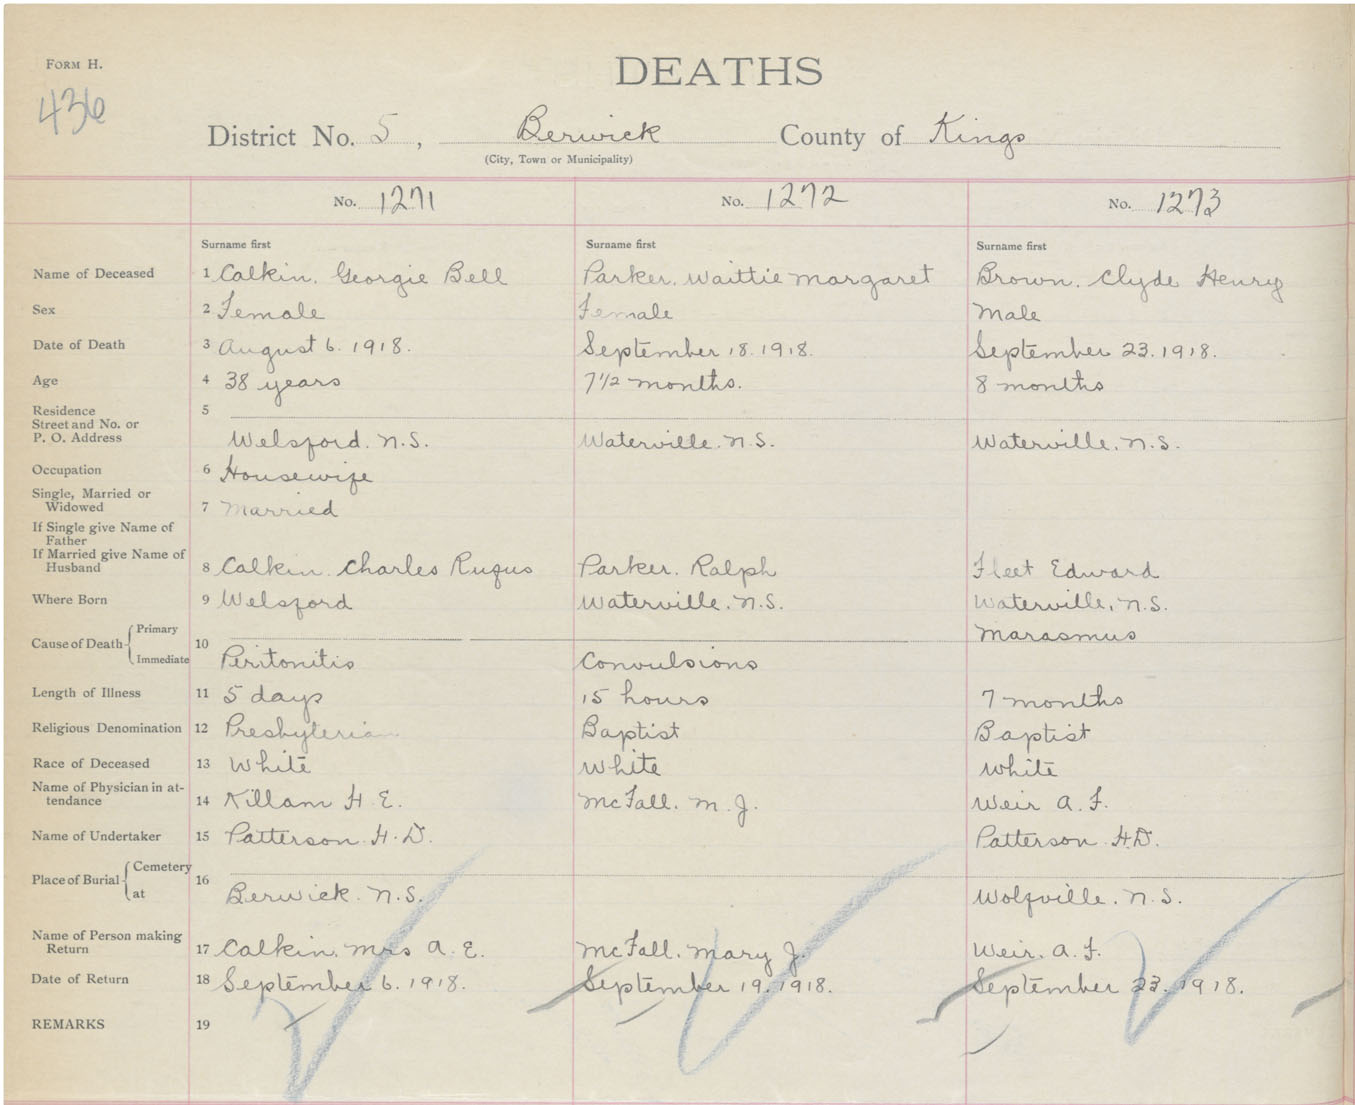 FORM H.
DEATHS
436
District No. 5, Berwick County of Kings
(City, Town or Municipality)
No. 1271 No. 1272 No. 1273
Surname first Surname first Surname first
Name of Deceased 1 Calkin. Georgie Bell Parker. Waittie Margaret Brown. Clyde Henry
Sex 2 Female Female Male
Date of Death 3 August 6. 1918. September 18. 1918. September 23. 1918.
Age 4 38 years 7 1/2 months. 8 months
Residence 5
Street and No. or
P. O. Address Welsford. N.S. Waterville. N.S. Waterville. N.S.
Occupation 6 Housewife
Single, Married or
Widowed 7 Married
If Single give Name of
Father
If Married give Name of
Husband 8 Calkin. Charles Rufus Parker. Ralph Fleet Edward
Where Born 9 Welsford Waterville. N.S. Waterville, N.S.
Cause of Death Primary 10 Marasmus
Immediate Peritonitis Convulsions
Length of Illness 11 5 days 15 hours 7 months
Religious Denomination 12 Presbyterian Baptist Baptist
Race of Deceased 13 White White White
Name of Physician in at-
tendance 14 Killam H. E. McFall. M. J. Weir A. F.
Name of Undertaker 15 Patterson. H. D. Patterson. H.D.
Place of Burial Cemetery 16
at Berwick. N.S. Wolfville. N.S.
Name of Person making
Return 17 Calkin. Mrs A. E. McFall. Mary J. Weir. A. F.
Date of Return 18 September 6. 1918. September 19. 1918. September 23. 1918.
REMARKS 19